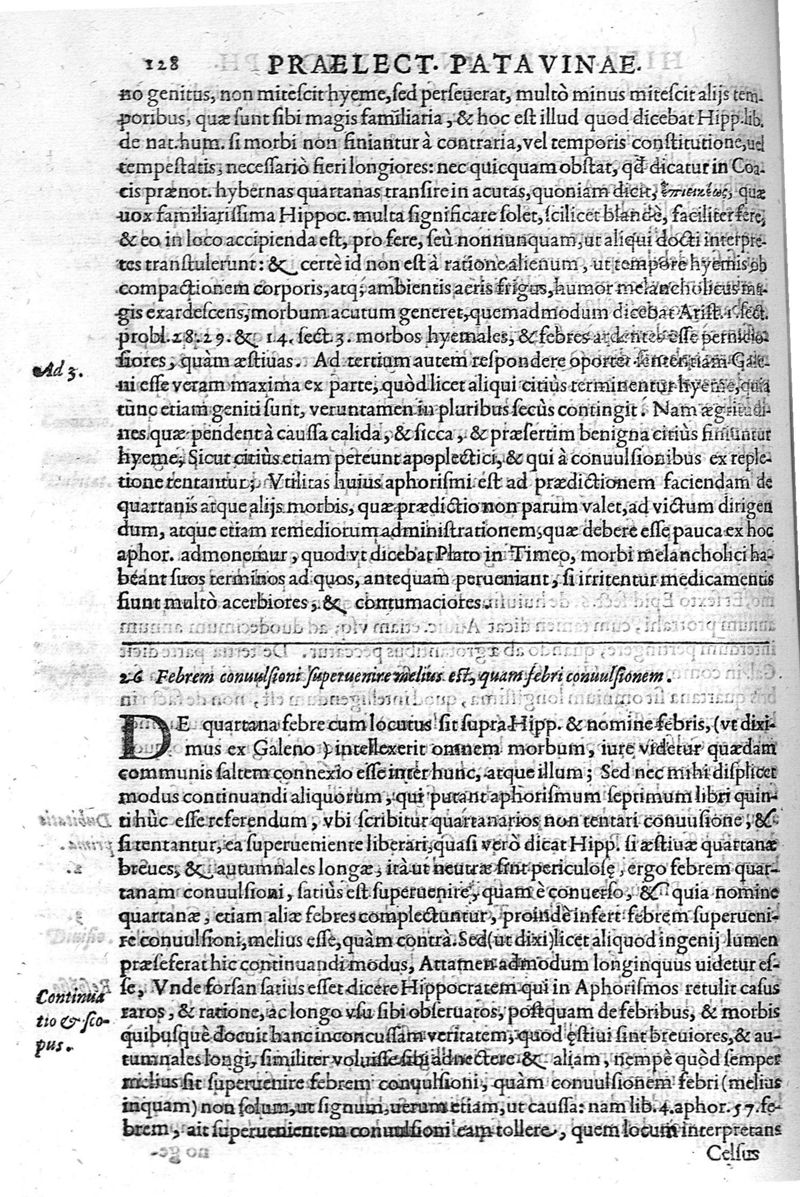 128 PRAELECT. PATAVINAE.
no genitus, non mitescit hyeme, sed perseuerat, multò minus mitescit alijs tem-
poribus, quæ sunt sibi magis familiaria, & hoc est illud quod dicebat Hipp. lib.
de nat. hum. si morbi non finiantur à contraria, vel temporis constitutione, uel
tempestatis, necessariò fieri longiores: nec quicquam obstat, qd dicatur in Coa-
cis prænot. hybernas quartanas transire in acutas, quoniam dicit, quæ
uox familiarissima Hippoc. multa significare solet, scilicet blandè, faciliter fere,
& eo in loco accipienda est, pro fere, seù nonnunquam, ut aliqui docti interpre-
tes transtulerunt: & certè id non est à ratione alienum, ut tempore hyemis ob
compactionem corporis, atq; ambientis aeris frigus, humor melancholicus ma-
gis exardescens, morbum acutum generet, quemadmodum dicebat Arist. 1. sect.
probl. 28. 29. & 14. sect. 3. morbos hyemales, & febres ardentes esse pernicio-
siores, quàm æstiuas. Ad tertium autem respondere oportet sententiam Gale-
Ad 3.
ni esse veram maxima ex parte, quòd licet aliqui citiùs terminentur hyeme, quia
tùnc etiam geniti sunt, veruntamen in pluribus secùs contingit. Nam ægritudi-
nes quæ pendent à caussa calida, & sicca, & præsertim benigna citiùs finiuntur
hyeme, Sicut citiùs etiam pereunt apoplectici, & qui à conuulsionibus ex reple-
tione tentantur; Vtilitas huius aphorismi est ad prædictionem faciendam de
quartanis atque alijs morbis, quæ prædictio non parum valet, ad victum dirigen
dum, atque etiam remediorum administrationem, quæ debere esse pauca ex hoc
aphor. admonemur, quod vt dicebat Plato in Timeo, morbi melancholici ha-
beant suos terminos ad quos, antequam perueniant, si irritentur medicamentis
fiunt multò acerbiores, & contumaciores.
26 Febrem conuulsioni superuenire melius est, quam febri conuulsionem.
DE quartana febre cum locutus sit supra Hipp. & nomine febris, (vt dixi-
mus ex Galeno) intellexerit omnem morbum, iure videtur quædam
communis saltem connexio esse inter hunc, atque illum; Sed nec mihi displicet
modus continuandi aliquorum, qui putant aphorismum septimum libri quin-
ti hùc esse referendum, vbi scribitur quartanarios non tentari conuusione, &
si tentantur, ea superueniente liberari, quasi verò dicat Hipp. si æstiuæ quartanæ
breues, & autumnales longæ, ità ut neutræ sint periculosę, ergo febrem quar-
tanam conuulsioni, satiùs est superuenire, quam è conuerso, & quia nomine
quartanæ, etiam aliæ febres complectuntur, proindè infert febrem superueni-
re conuulsioni, melius esse, quàm contrà. Sed (ut dixi) licet aliquod ingenij lumen
præseferat hic continuandi modus, Attamen admodum longinquus uidetur es-
se, Vnde forsan satius esset dicere Hippocratem qui in Aphorismos retulit casus
Continua
tio & sco-
pus.
raros, & ratione, ac longo vsu sibi obseruatos, postquam de febribus, & morbis
quibusquè docuit hanc inconcussam veritatem, quod ęstiui sint breuiores, & au-
tumnales longi, similiter voluisse sibi adnectere & aliam, nempè quòd semper
melius sit superuenire febrem conuulsioni, quàm conuulsionem febri (melius
inquam) non solum, ut signum, uerum etiam, ut caussa: nam lib. 4. aphor. 57. fe-
brem, ait superuenientem conuulsioni eam tollere, quem locum interpretans
Celsus